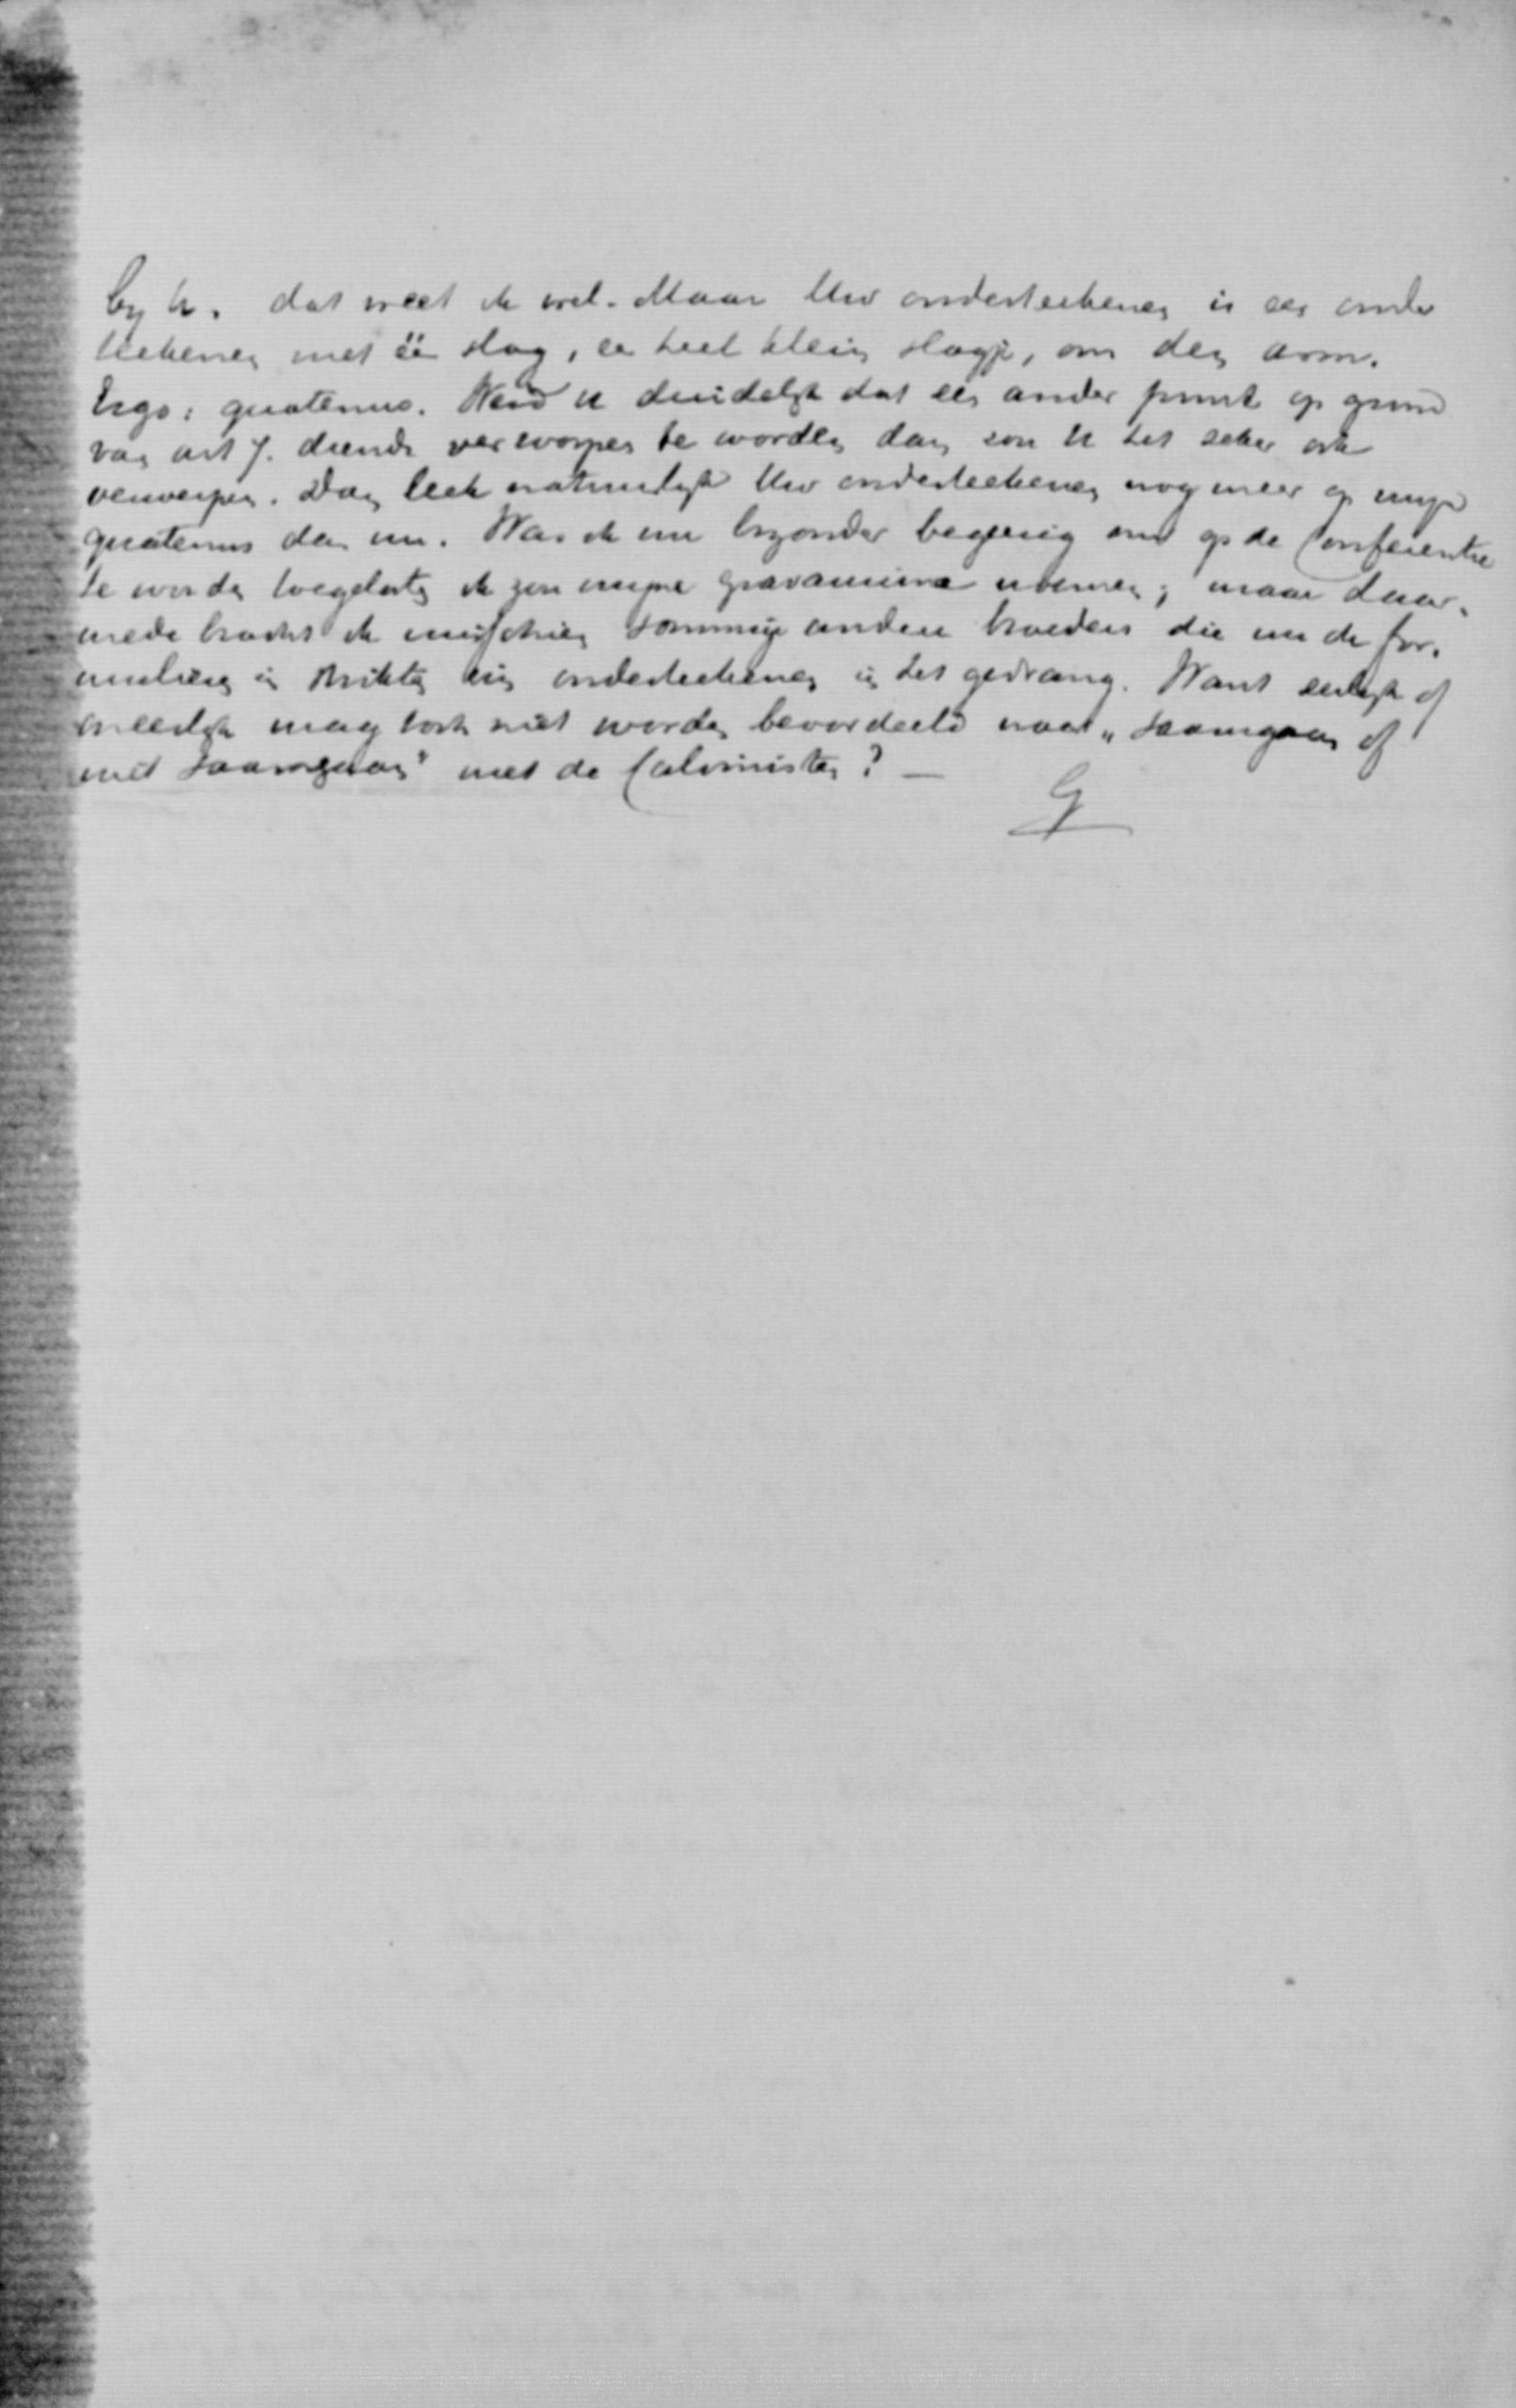 by U. dat weet ik wel. Maar Uw onderteekenen is een onder
teekenen met één slag, een heel klein slagje, om den arm.
Ergo: quatenus. Werd U duidelijk dat een ander punt op grond
van art 7. diende verworpen te worden dan zou U het zeker ook
verwerpen. Dan leek natuurlijk Uw onderteekenen nog meer op mijn
quatenus dan nu. Was ik nu byzonder begeerig om op de Conferentie
te worden toegelaten ik zou mijne gravamina noemen; maar daar-
mede bracht ik misschien sommige andere broeders die nu de for-
muleering in strikten zin onderteekenen in het gedrang. Want eerlijk of
oneerlijk mag toch niet worden beoordeeld naar „saamgaan of
niet saamgaan" met de Calvinisten? —
G